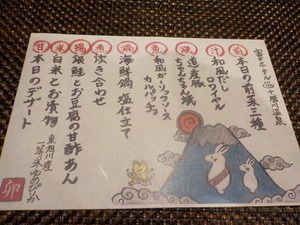 富士ホテル 十勝川温泉
前 本日の前菜三種
汁 和風だしロワイヤル
焼 道産豚ちゃんちゃん焼
魚 和風ガーリックソース
カルパッチョ
鍋 海鮮鍋 塩仕立て
煮 炊き合わせ
揚 銀鮭とお豆腐の甘酢あん
米 白米とお漬物
東旭川産
一等米ゆめぴりか
甘 本日のデザート
卯